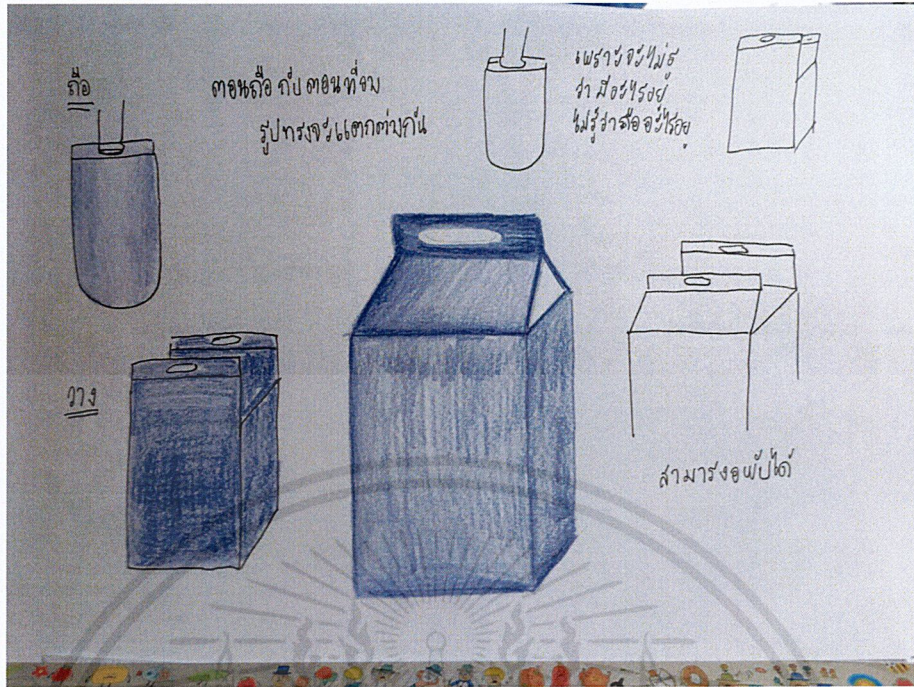 ถือ
ตอนถือ กับ ตอนที่จบ
รูปทรงจะแตกต่างกัน
เพราะจะไม่รู้
ว่ามีอะไรอยู่
ไม่รู้ว่าถืออะไรอยู่
วาง
สามารงอพับได้